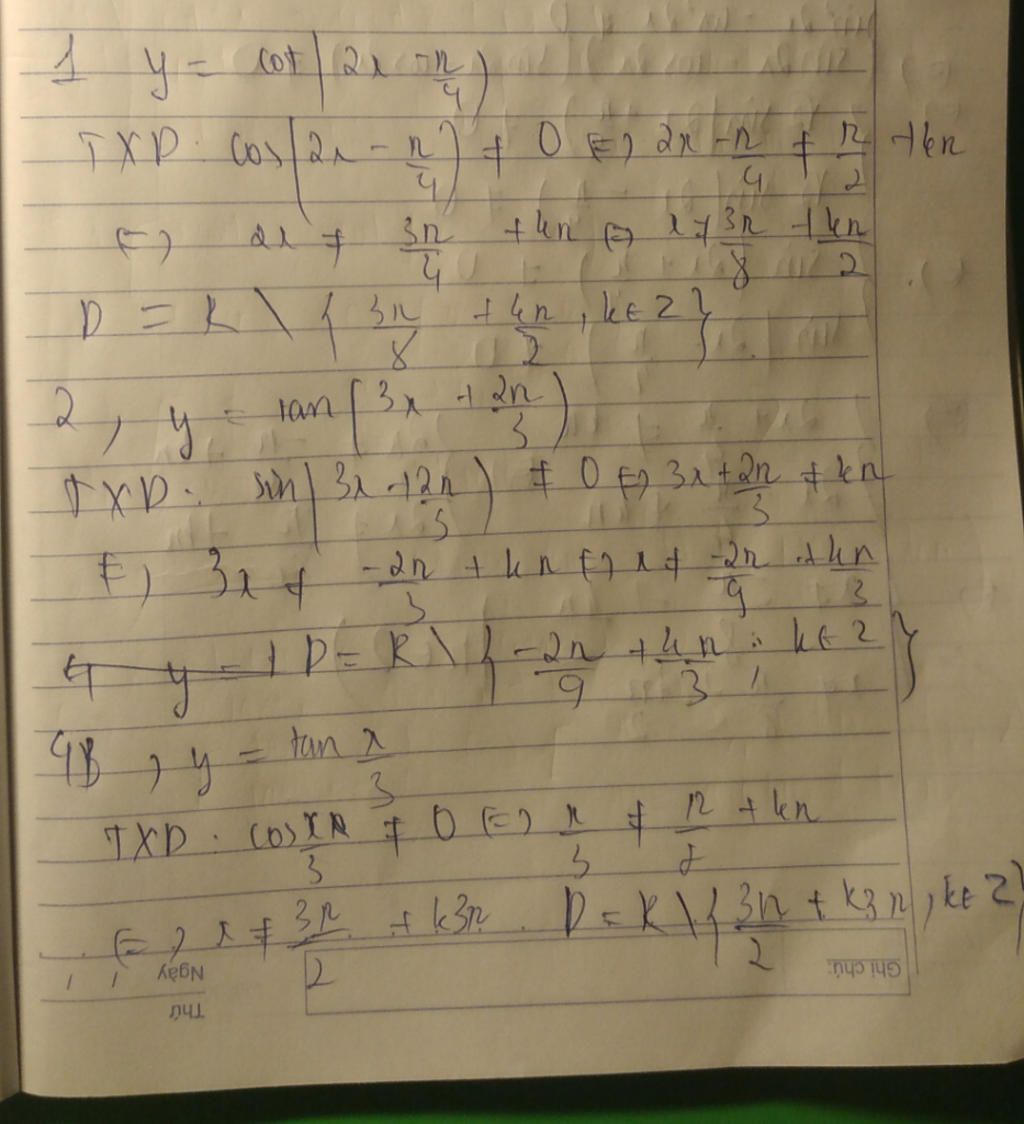 1 y = cot(2x - π/4)
TXD: cos(2x - π/4) ≠ 0 <=> 2x - π/4 ≠ π/2 + kπ
<=> 2x ≠ 3π/4 + kπ <=> x ≠ 3π/8 + kπ/2
D = R \ { 3π/8 + kπ/2, k ∈ Z }
2, y = tan(3x + 2π/3)
TXD: sin(3x + 2π/3) ≠ 0 <=> 3x + 2π/3 ≠ kπ
<=> 3x ≠ -2π/3 + kπ <=> x ≠ -2π/9 + kπ/3
D = R \ { -2π/9 + kπ/3 ; k ∈ Z }
, y = tan x/3
TXD: cos x/3 ≠ 0 <=> x/3 ≠ π/2 + kπ
<=> x ≠ 3π/2 + k3π. D = R \ { 3π/2 + k3π, k ∈ Z }
Ngày
Ghi chú:
Thứ